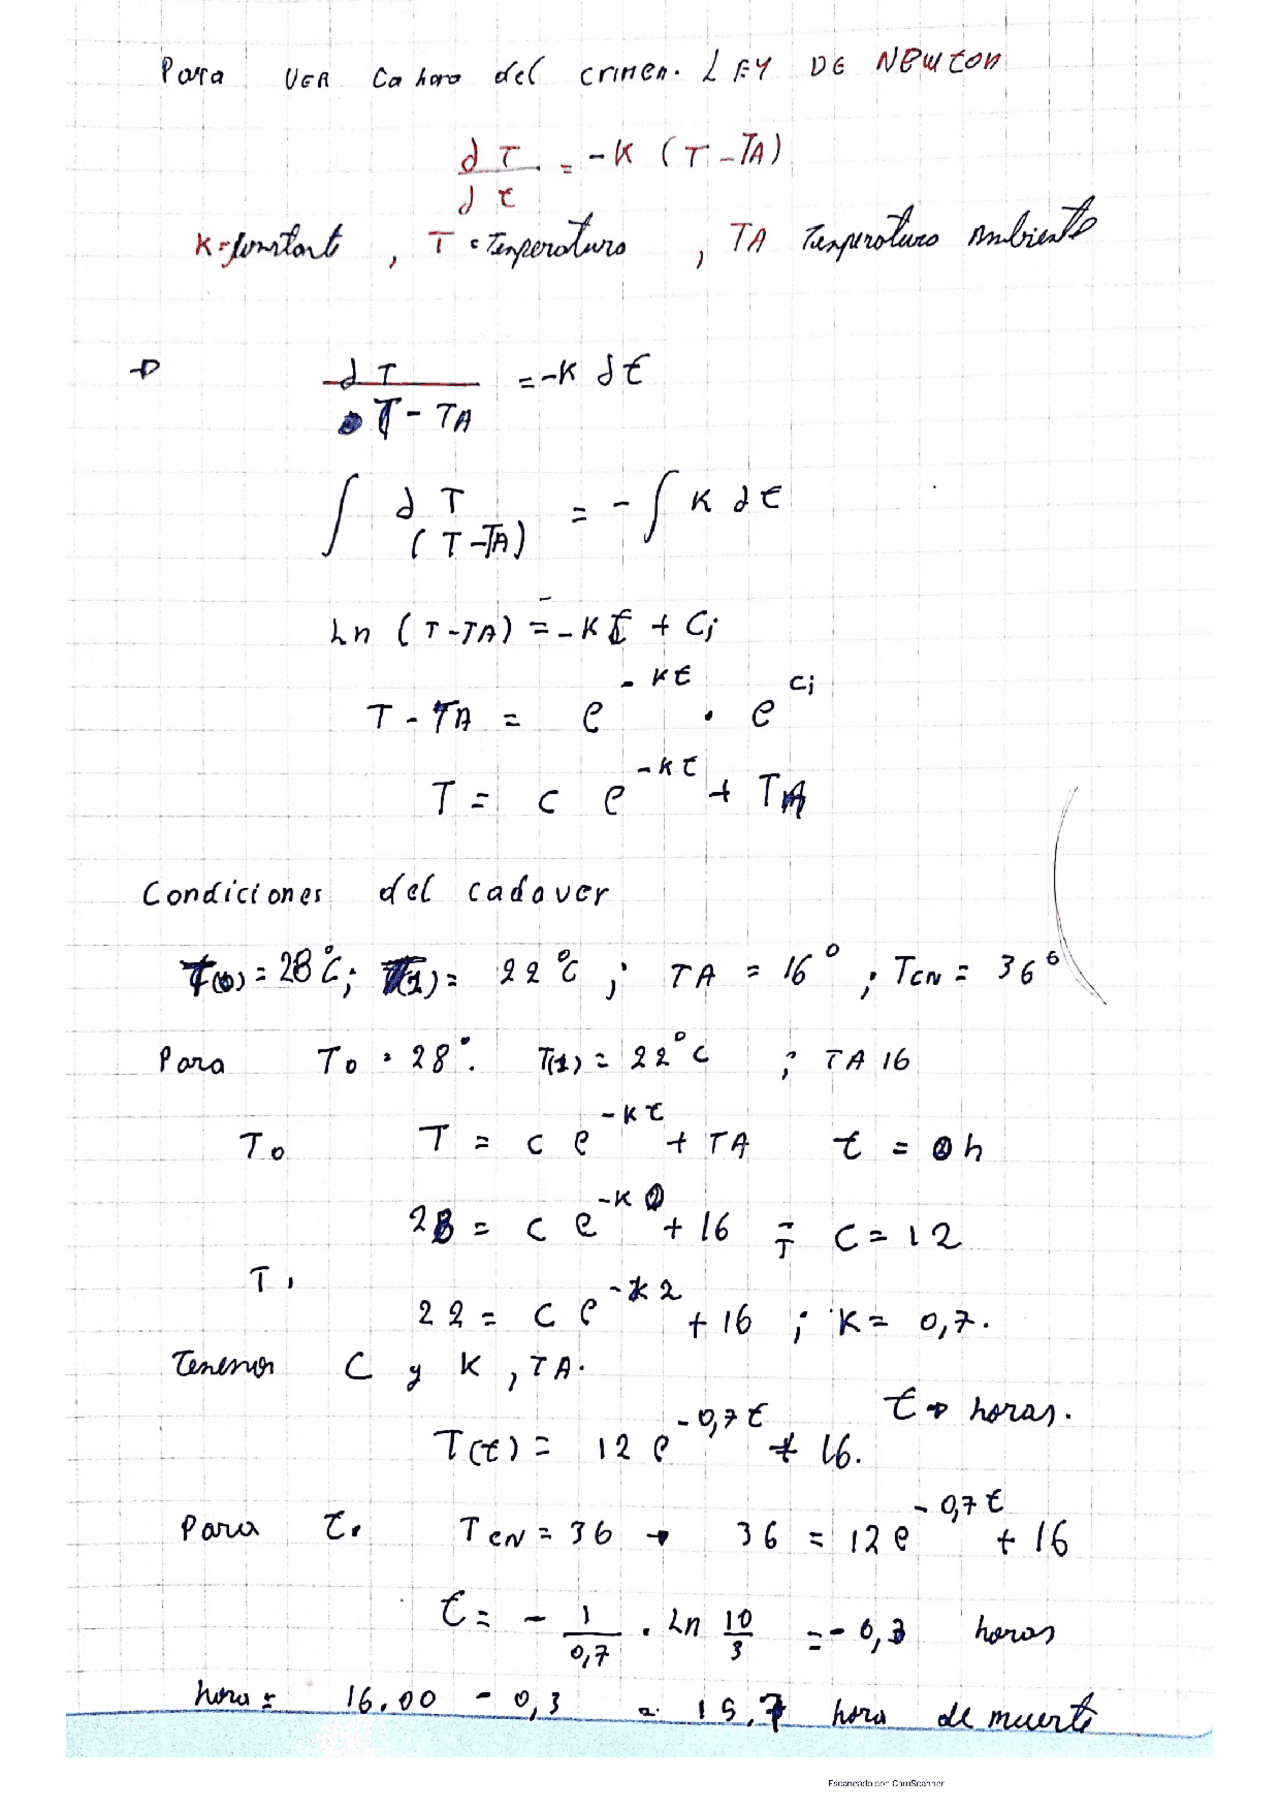 Para VER La hora del crimen. LEY DE NEWTON
dT/dt = -K (T - TA)
K = constante, T = Temperatura, TA Temperatura Ambiente
→ dT/(T - TA) = -K dt
∫ dT/(T - TA) = -∫ K dt
Ln (T - TA) = -Kt + Ci
T - TA = e^(-Kt) · e^(Ci)
T = c e^(-Kt) + TA
Condiciones del cadaver
T(0) = 28°C; T(2) = 22°C; TA = 16°; TCN = 36°
Para T0 = 28°. T(2) = 22°C ; TA 16
T0 T = c e^(-Kt) + TA t = 0 h
28 = c e^(-K0) + 16 C = 12
T1
22 = c e^(-K2) + 16 ; K = 0,7.
Tenemos C y K, TA.
t → horas.
T(t) = 12 e^(-0,7t) + 16.
Para t. TCN = 36 → 36 = 12 e^(-0,7t) + 16
t = - 1/0,7 . Ln 10/3 = - 0,3 horas
hora = 16.00 - 0,3 = 15.7 hora de muerte
Escaneado con CamScanner